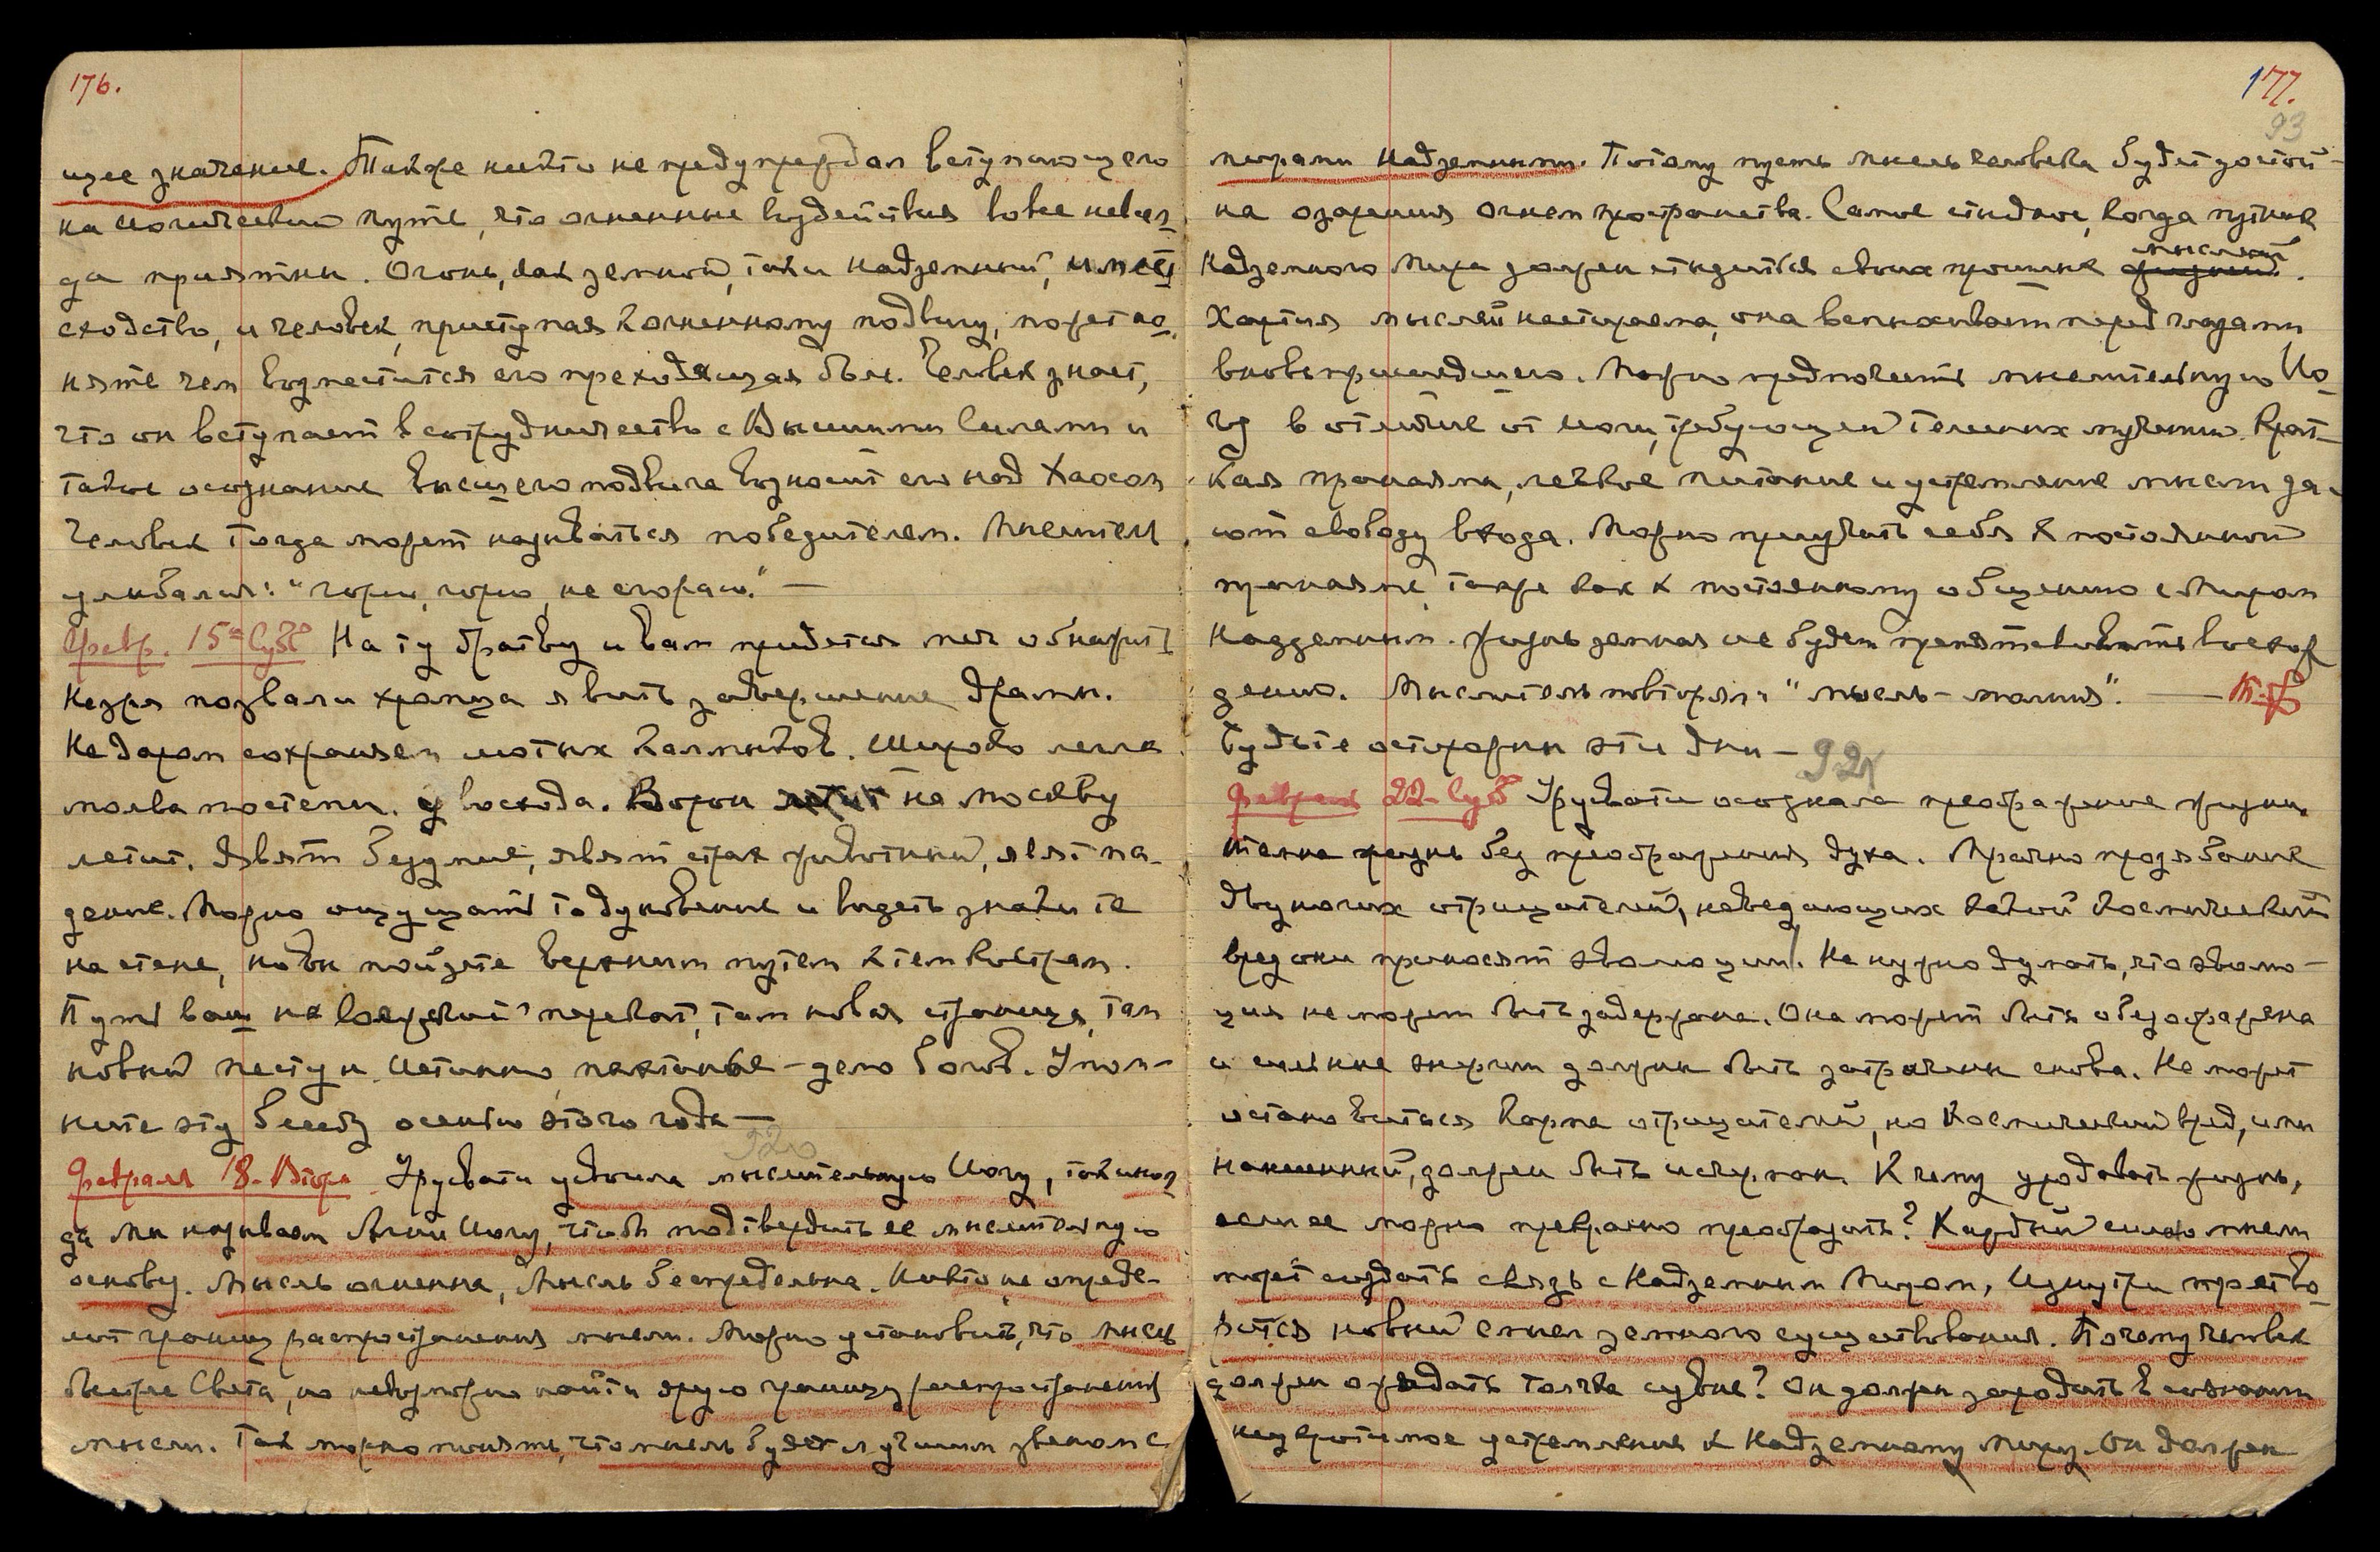 176.
щее значение. Также никто не предупреждал вступающего
на йогический путь, что огненные воздействия вовсе не всег
да приятны. Огонь, как земной, так и надземный, имеет
сходство, и человек, приступая к огненному подвигу, может по
нять чем возместится его преходящая боль. Человек знает,
что он вступает в сотрудничество с Высшими Силами и
такое осознание высшего подвига возносит его над хаосом
Человек тогда может называться победителем. Мыслитель
улыбался: "горю, горю, не сгораю." —
Февр. 15е Суб. На ту братву и вам придется меч обнажить
Незря позвали храмца явить завершение драмы.
Не даром сохраняем калмыков. Широко легла
молва по степи. у восхода. Ворон летит на Москву
летит. Явят безумие, явят страх животный, явят па-
дение. Можно ощущать то дуновение и видеть знаки те
на стене, но вы пойдете верхним путем к тем кострам.
Путь ваш на перевал, там новая страница, там
новый Истинно, - дело богов. Упом-
ните эту беседу осенью этого года —
920
Февраля 18. Втор. Урусвати усвоила мыслительную Йогу, так иног
да мы называем Агни Йогу, чтобы подтвердить ее мыслительную
основу. Мысль огненна, Мысль беспредельна. Никто не опреде-
лит границ распространения мысли. Можно установить, что мысль
быстрее Света, но невозможно найти другую границу распространения
мысли. Так можно понять, что мысль будет лучшим звеном с
177.
93
мирами надземными. Потому пусть мысль человека будет достой-
на озарения огнем пространства. Самое стыдное, когда путник
мыслей
Надземного Мира должен стыдиться своих прошлых жизней.
Хартия мыслей нестираема, она вспыхивает перед глазами
вновьпришедшего. Можно предпочесть мыслительную Йо
гу в отличие от йоги, требующей телесных мучений. Крат-
кая пранаяма, легкое питание и устремление мысли да-
ют свободу входа. Можно приучить себя к постоянной
пранаяме, также как к постоянному общению с Миром
Надземным. Жизнь земная не будет препятствовать восхож
дению. Мыслитель повторял: "мысль - молния". —
Будьте осторожны эти дни —
921
Февраля 22 - Суб Урусвати осознала преображение жизни.
Тленна жизнь без преображения духа. Мрачно прозябание
двуногих отрицателей, неведающих какой космический
вред они приносят эволюции. Не нужно думать, что эволю-
ция не может быть задержана. Она может быть обезображена
и сильные энергии должны быть затрачены снова. Не может
остановиться Карма отрицателей, но Космический вред, ими
нанесенный, должен быть исчерпан. К чему уродовать жизнь,
если ее можно прекрасно преобразить? Каждый силою мысли
может создать связь с Надземным Миром, Изнутри претво-
рится новый смысл земного существования. Почему человек
должен ожидать толчка извне? Он должен зародить в сознании
неукротимое устремление к Надземному миру. Он должен